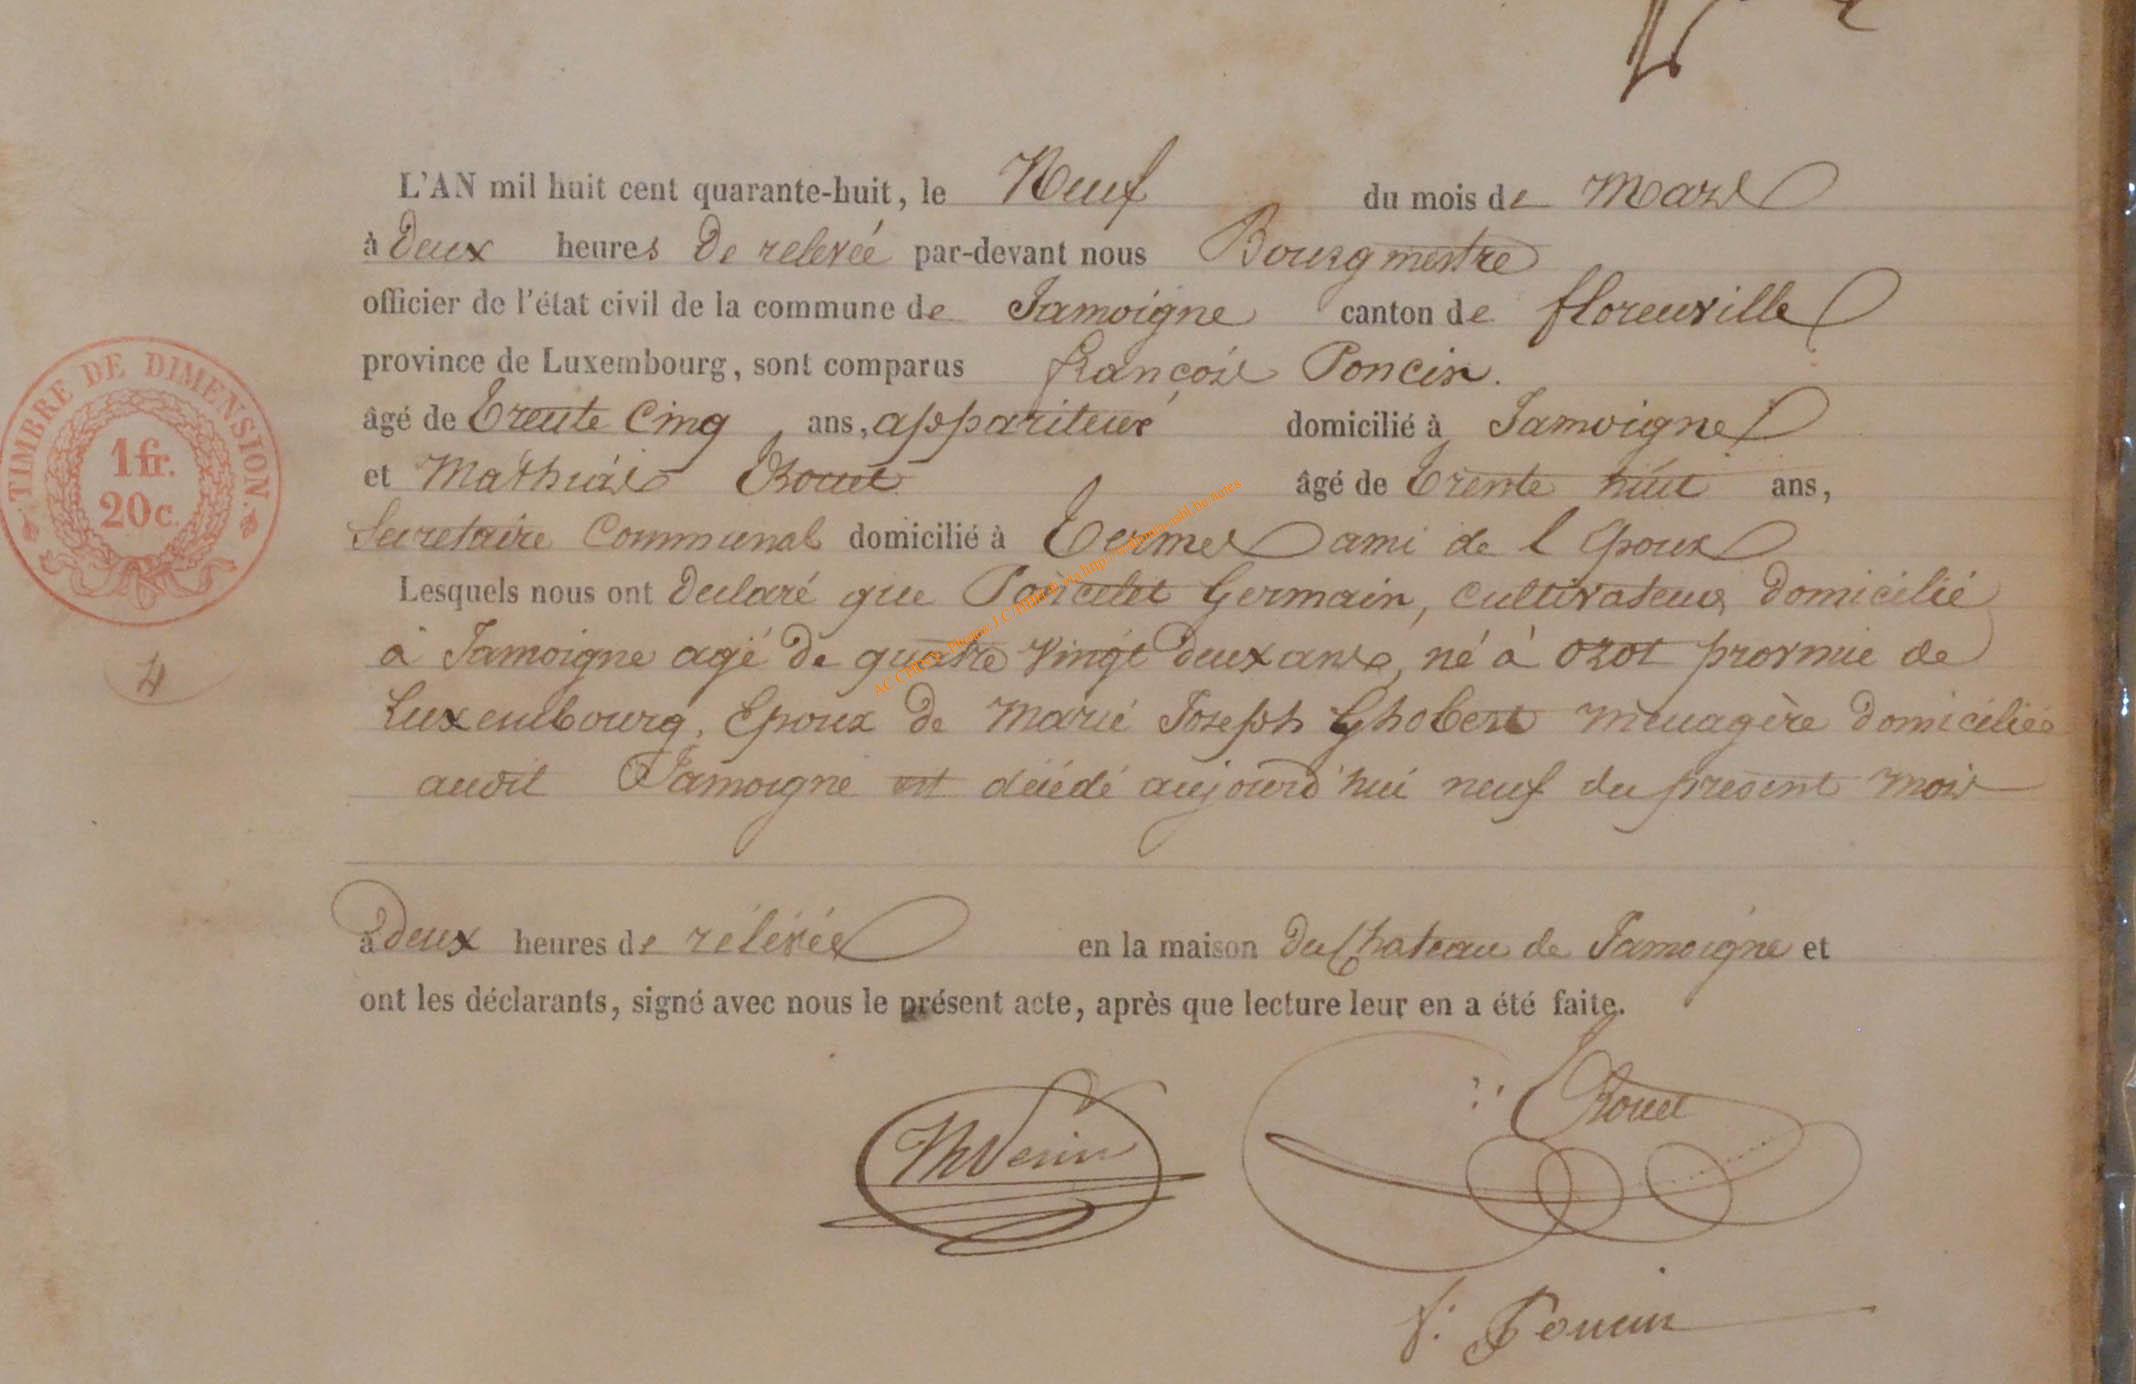 L'AN mil huit cent quarante-huit, le Neuf du mois de Mars
à deux heures de relevée par-devant nous Bourgmestre
officier de l'état civil de la commune de Jamoigne canton de florenville
province de Luxembourg, sont comparus françois Poncin.
âgé de Trente Cinq ans, appariteur domicilié à Jamoigne
et Mathias Rouet âgé de trente huit ans,
Secretaire Communal domicilié à Termes ami de l Epoux
Lesquels nous ont declaré que Poncelet Germain, cultivateur domicilié
à Jamoigne agé de quatre vingt deux ans, né à Izel province de
Luxembourg, Epoux de Marie Joseph Ghobert menagère domiciliée
audit Jamoigne est décédé aujourd'hui neuf du présent mois
à deux heures de rélévée en la maison du Chateau de Jamoigne et
ont les déclarants, signé avec nous le présent acte, après que lecture leur en a été faite.
Rouet
f: Poncin
TIMBRE DE DIMENSION.
1 fr.
20 c.
4